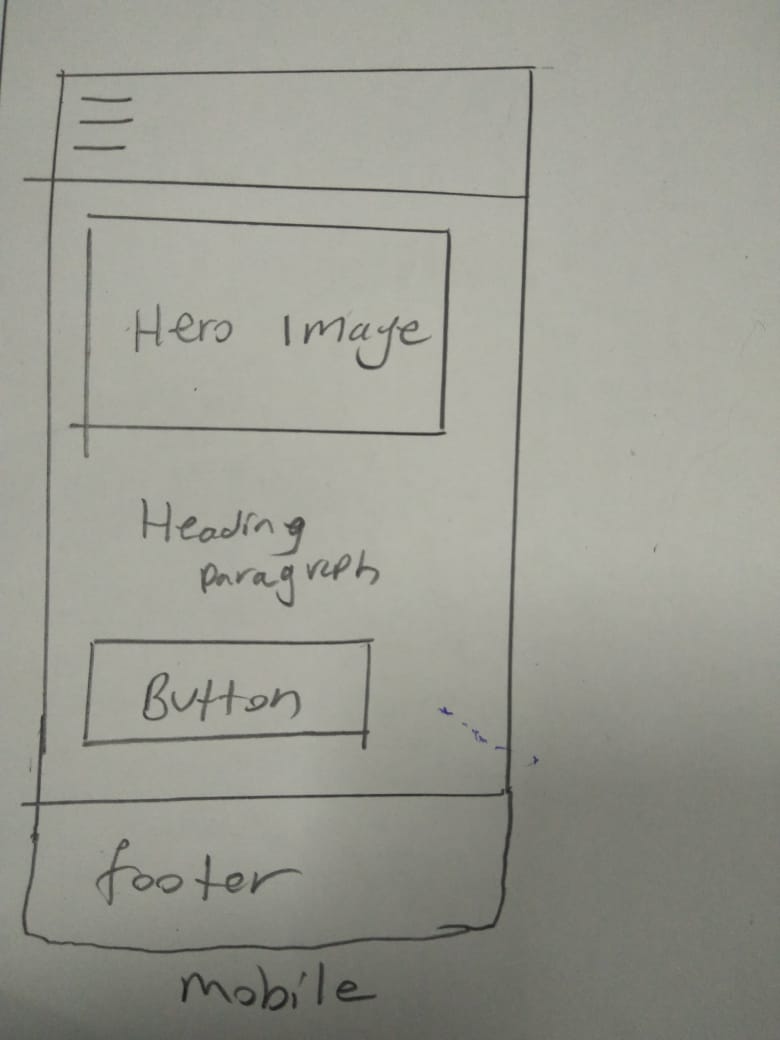 Hero Image
Heading
paragraph
Button
footer
mobile